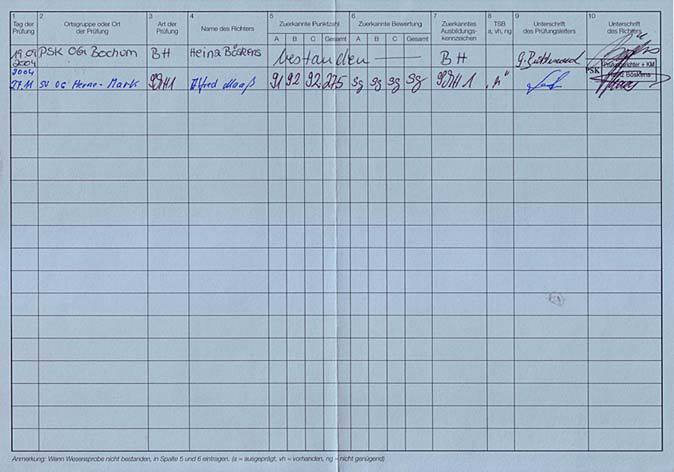 1 2 3 4 5 6 7 8 9 10
Tag der Prüfung Ortsgruppe oder Ort der Prüfung Art der Prüfung Name des Richters Zuerkannte Punktzahl Zuerkannte Bewertung Zuerkanntes Ausbildungs-kennzeichen TSB a, vh, ng Unterschrift des Prüfungsleiters Unterschrift des Richters
A B C Gesamt A B C Gesamt
19.09 2004 PSK OG Bochum BH Heinz Böskens bestanden BH
PSK
2004 27.11 SV OG Herne-Mark SchH1 Alfred Maaß 91 92 92 275 sg sg sg sg SchH 1
Anmerkung: Wenn Wesensprobe nicht bestanden, in Spalte 5 und 6 eintragen. (a = ausgeprägt, vh = vorhanden, ng = nicht genügend)